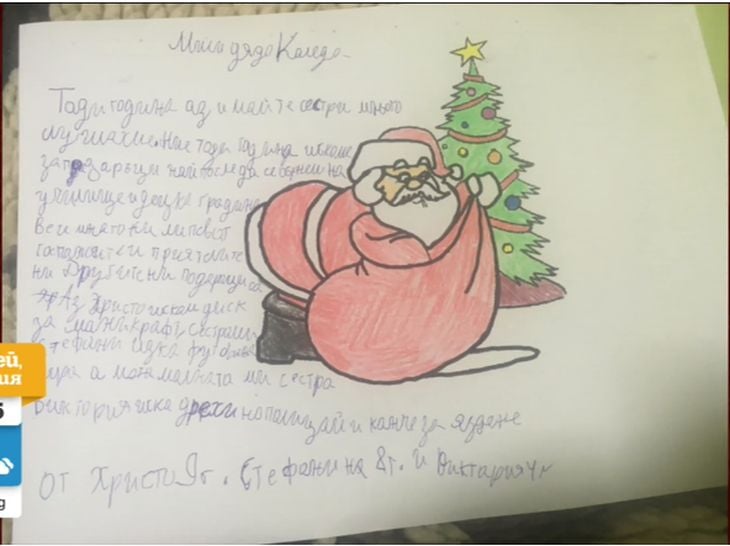 Мили дядо Коледа
Тази година аз и майте сестри много
слушахме. Ние тази година искаме
за подаръци най после да се върнем на
училище и децка градина
Веч много ни липсват
госпожите и приятелите
ни Другите ни подаръци са
Аз Христо искам диск
за маинкрафт сестрами
Стефани иска футболна
а малката ми сестра
Виктория иска дрехи на полицай и конче за яздене
от Христо 9г. Стефани на 8г. и Виктария 4г
ей,
ия
5
g